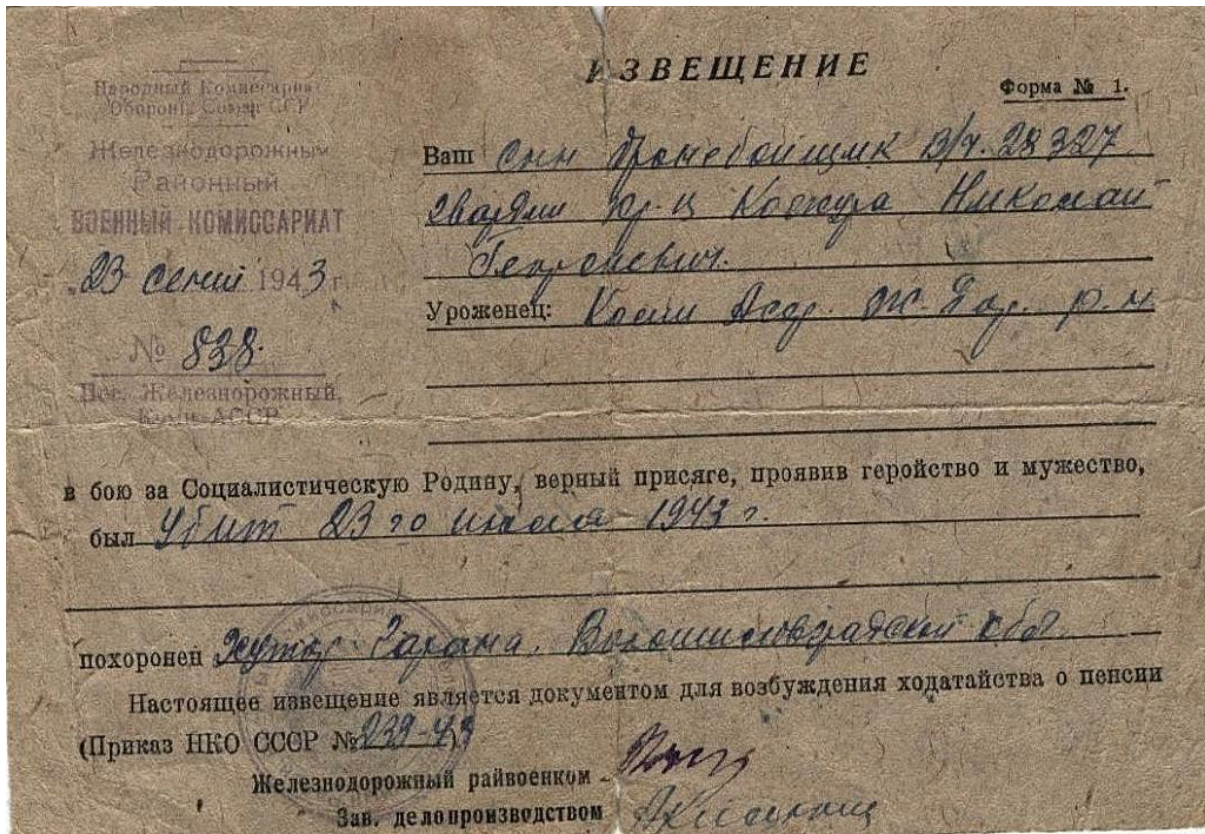 ИЗВЕЩЕНИЕ
Форма № 1.
Народный Комиссариат
Обороны Союза ССР
Железнодорожный
Районный
ВОЕННЫЙ КОМИССАРИАТ
23 1943 г.
№ 838.
Пос. Железнорожный,
Коми АССР
Ваш Сын бронебойщик В/ч. 28327
гвардии кр-ц Кожура Николай
Георгиевич.
Уроженец: Коми Асср. р.н
в бою за Социалистическую Родину, верный присяге, проявив геройство и мужество,
был Убит 23 го июля 1943 г.
похоронен Хутор Гарана. Ворошиловградской обл.
Настоящее извещение является документом для возбуждения ходатайства о пенсии
(Приказ НКО СССР № 239-43
Железнодорожный райвоенком
Зав. делопроизводством